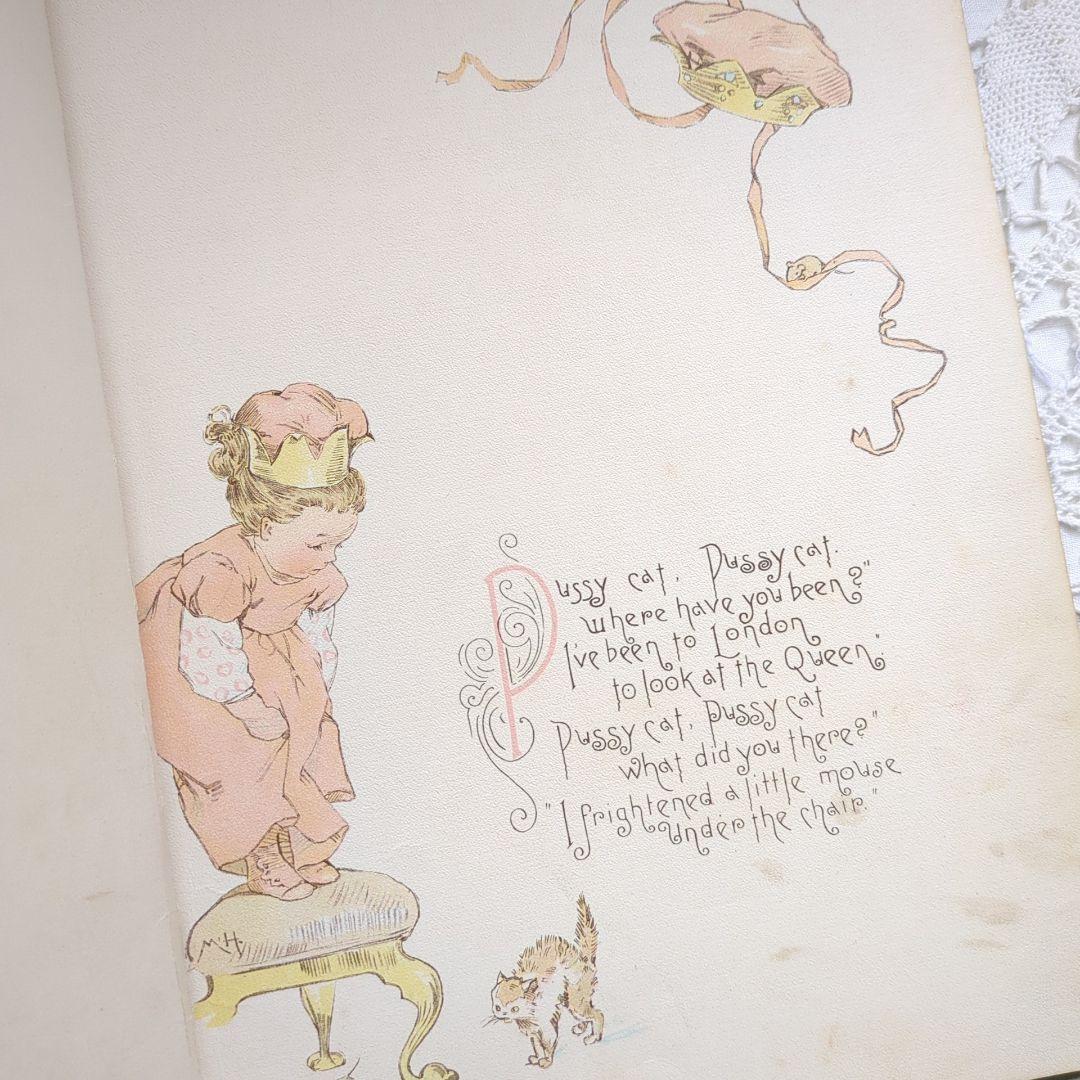 Pussy cat, Pussy cat.
where have you been?"
I've been to London
to look at the Queen."
Pussy cat, Pussy cat
what did you there?"
"I frightened a little mouse
under the chair."
M·H